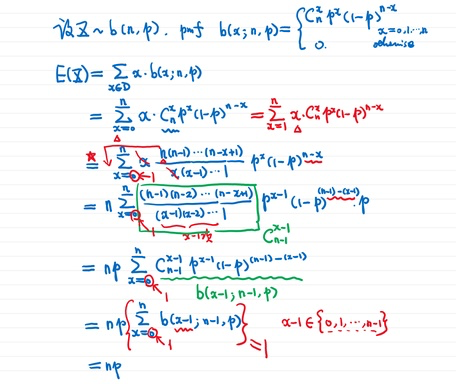 设 X ~ b(n,p). pmf b(x;n,p) = { C_n^x p^x (1-p)^{n-x} x=0,1,…,n
0. otherwise
E(X) = Σ_{x∈D} x·b(x;n,p)
= Σ_{x=0}^{n} x·C_n^x p^x (1-p)^{n-x} = Σ_{x=1}^{n} x·C_n^x p^x (1-p)^{n-x}
* = Σ_{x=0→1}^{n} x n(n-1)…(n-x+1) / x(x-1)…1 p^x (1-p)^{n-x}
= n Σ_{x=0→1}^{n} (n-1)(n-2)…(n-x+1) / (x-1)(x-2)…1 p^{x-1} (1-p)^{(n-1)-(x-1)}·p
C_{n-1}^{x-1}
= np Σ_{x=0→1}^{n} C_{n-1}^{x-1} p^{x-1} (1-p)^{(n-1)-(x-1)}
b(x-1; n-1, p)
= np { Σ_{x=0→1}^{n} b(x-1; n-1, p) } = 1 x-1 ∈ {0,1,…,n-1}
= np